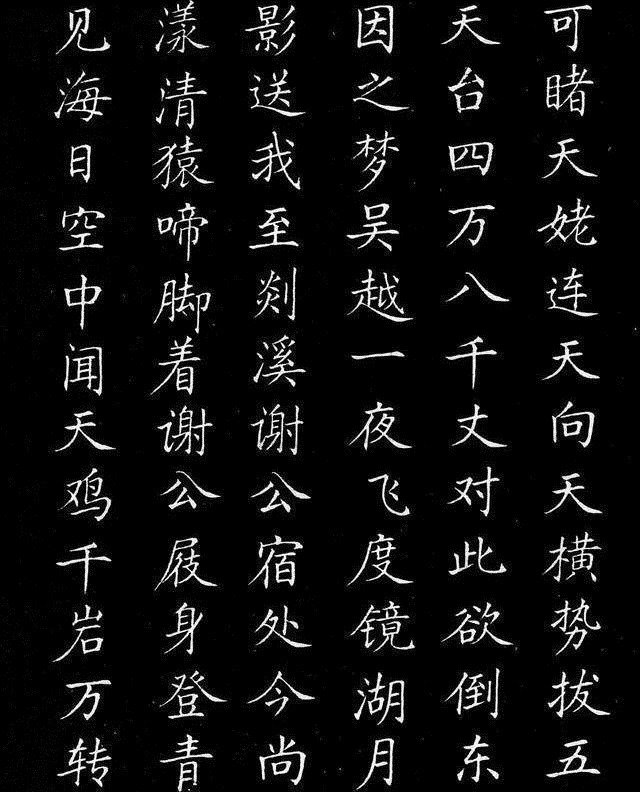 可睹天姥连天向天横势拔五
天台四万八千丈对此欲倒东
因之梦吴越一夜飞度镜湖月
影送我至剡溪谢公宿处今尚
漾清猿啼脚着谢公屐身登青
见海日空中闻天鸡千岩万转